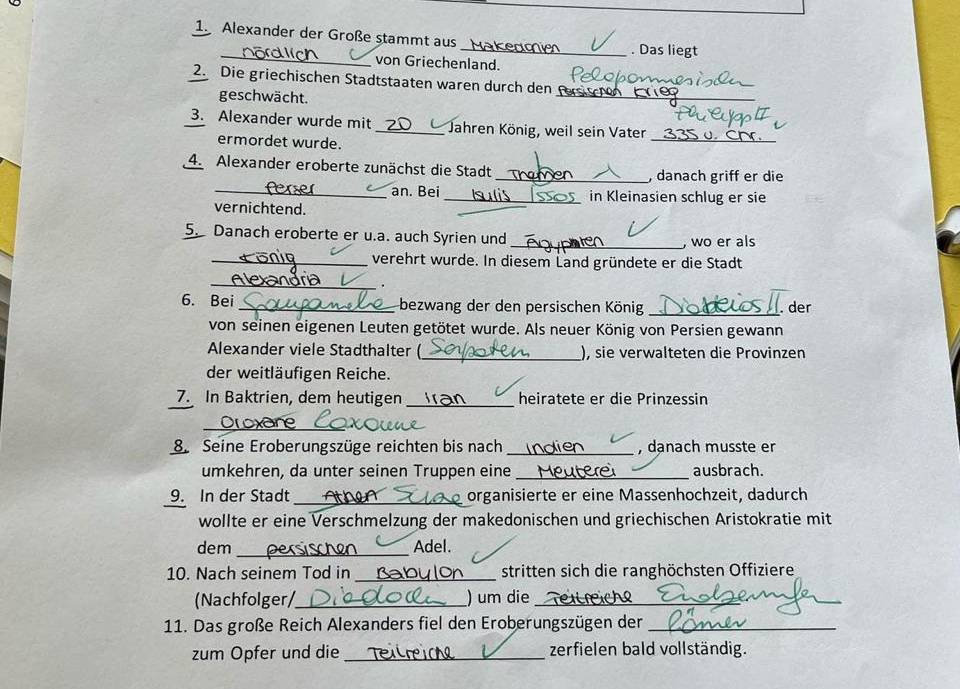 1. Alexander der Große stammt aus Makedonien ✓. Das liegt
nördlich ✓ von Griechenland.
Peloponnesischen
2. Die griechischen Stadtstaaten waren durch den persischen Krieg
geschwächt.
Philipp II ✓
3. Alexander wurde mit 20 ✓ Jahren König, weil sein Vater 335 v. Chr.
ermordet wurde.
4. Alexander eroberte zunächst die Stadt , danach griff er die
Perser ✓ an. Bei Issos in Kleinasien schlug er sie
vernichtend.
5. Danach eroberte er u.a. auch Syrien und Ägypten ✓, wo er als
König ✓ verehrt wurde. In diesem Land gründete er die Stadt
Alexandria ✓.
6. Bei Gaugamela bezwang der den persischen König II. der
von seinen eigenen Leuten getötet wurde. Als neuer König von Persien gewann
Alexander viele Stadthalter ( ), sie verwalteten die Provinzen
der weitläufigen Reiche.
7. In Baktrien, dem heutigen Iran ✓ heiratete er die Prinzessin
8. Seine Eroberungszüge reichten bis nach Indien ✓, danach musste er
umkehren, da unter seinen Truppen eine Meuterei ✓ ausbrach.
9. In der Stadt Athen organisierte er eine Massenhochzeit, dadurch
wollte er eine Verschmelzung der makedonischen und griechischen Aristokratie mit
dem persischen ✓ Adel.
10. Nach seinem Tod in Babylon ✓ stritten sich die ranghöchsten Offiziere
(Nachfolger/Diadochen) um die Teilreiche
11. Das große Reich Alexanders fiel den Eroberungszügen der Römer
zum Opfer und die Teilreiche ✓ zerfielen bald vollständig.